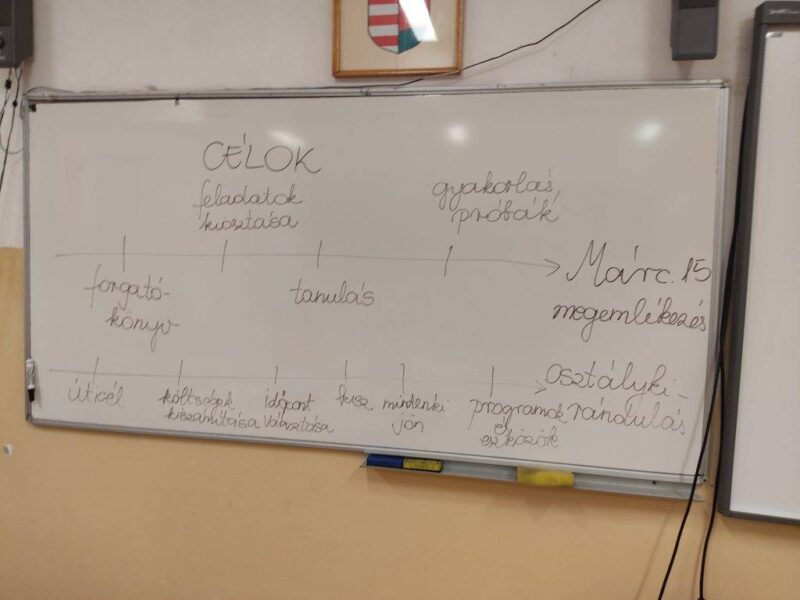 CÉLOK
feladatok
kiosztása
gyakorlás,
próbák
forgató-
könyv
tanulás
Márc. 15
megemlékezés
úticél
költségek
kiszámítása
időpont
választása
busz
mindenki
jön
programok
és
eszközök
osztályki-
rándulás